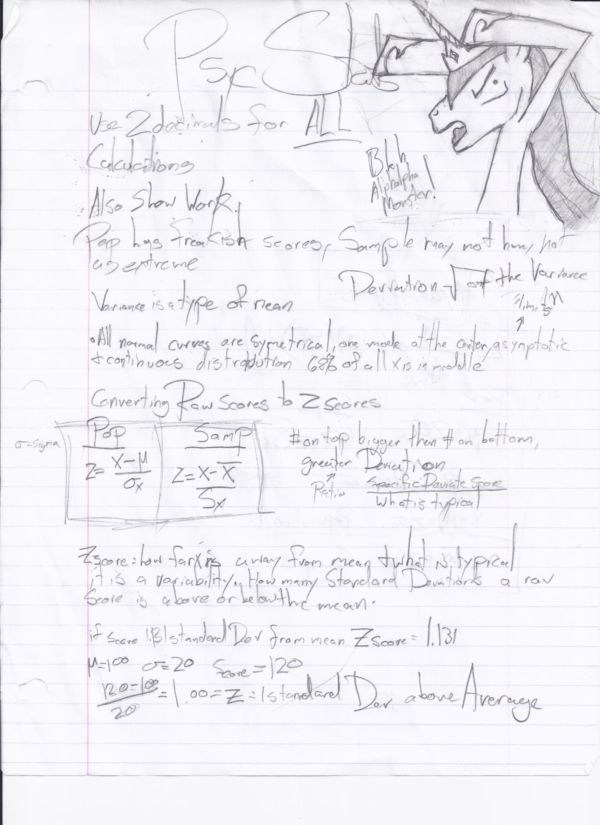 Psy Stats
Use 2 decimals for ALL
Calculations
Bleh
Alphalpha
Monster!
Also Show Work.
Pop has freakish scores, Sample may not have, not
as extreme
Deviation √ of the Variance
Variance is a type of mean
• All normal curves are symetrical, one mode at the center, asymptotic
& continuous distrobution 68% of all X is in middle
Converting Raw Scores to Z scores
σ=sigma
Pop
Z= X-μ
σx
Samp
Z= X-X̅
Sx
# on top bigger then # on bottom,
greater Deviation
↑
Ratio
Specific Deviate Score
What is typical
Z score: how far X is away from mean & what is typical
it is a variability. How many Standard Deviations a raw
Score is above or below the mean.
if score 1.131 standard Dev from mean Z score = 1.131
μ=100 σ=20 Score=120
120-100
20
=1.00=Z=1 standard Dev above Average